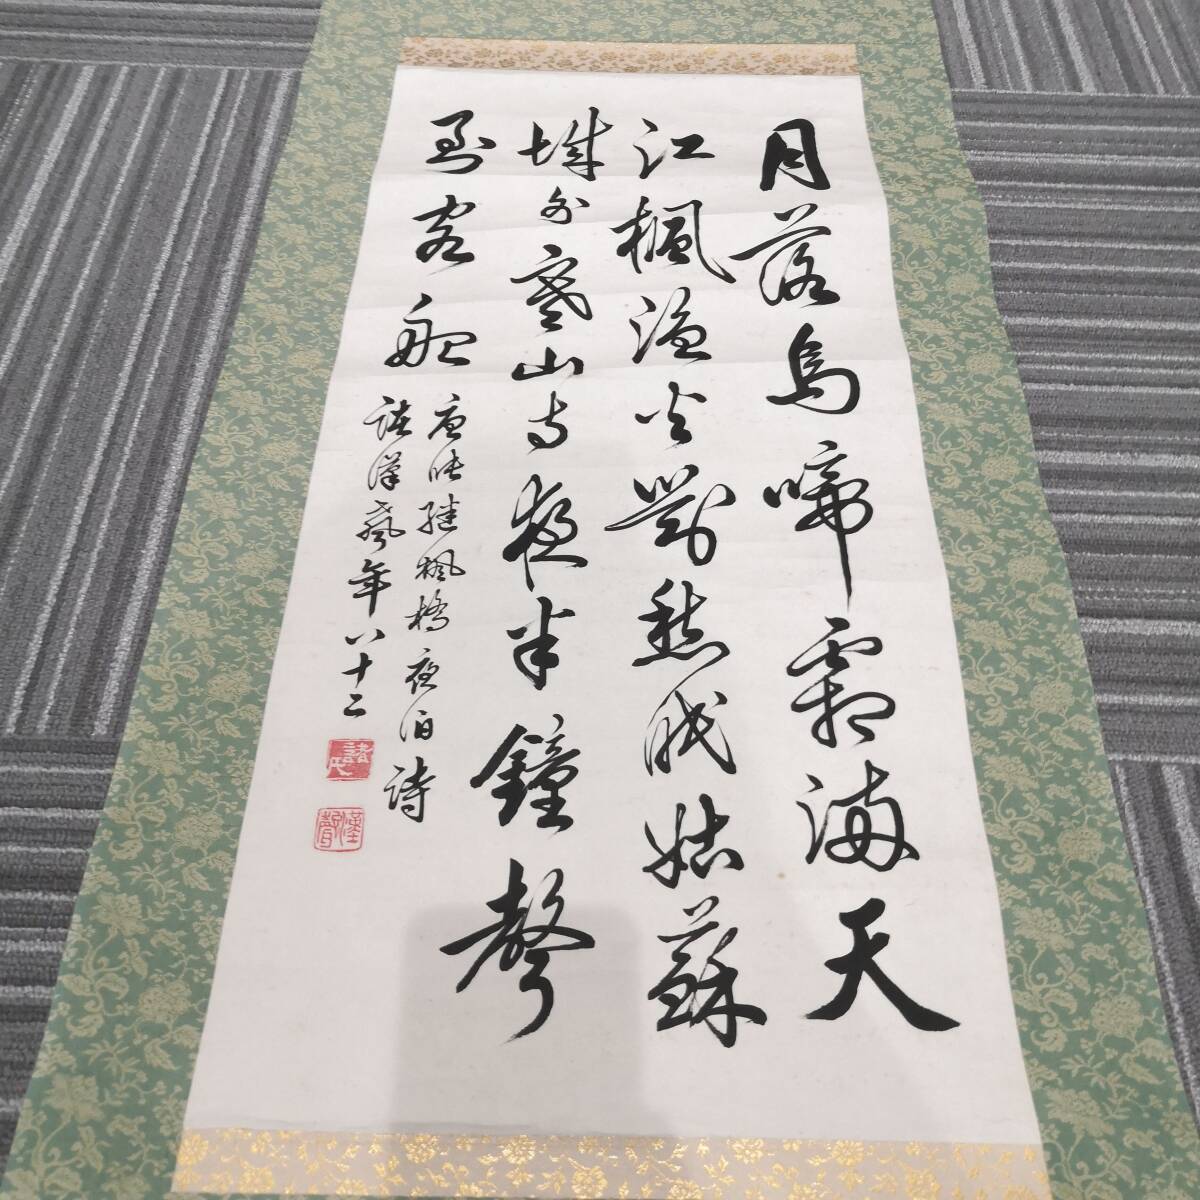 月落烏啼霜滿天
江楓漁火對愁眠姑蘇
城外寒山寺夜半鐘聲
到客船
唐張继楓橋夜泊詩
諸漢聲年八十二
諸氏
漢聲